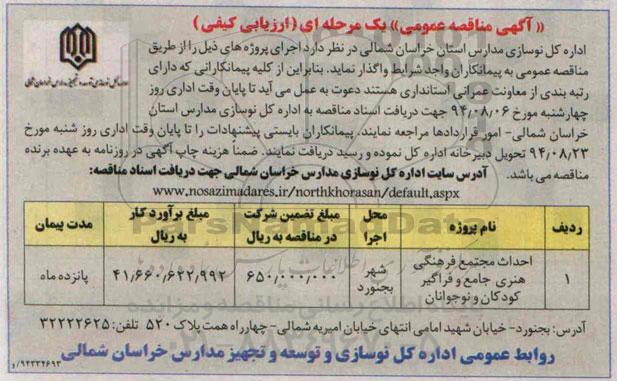 « آگهی مناقصه عمومی» یک مرحله ای (ارزیابی کیفی)
اداره کل نوسازی مدارس استان خراسان شمالی در نظر دارد اجرای پروژه های ذیل را از طریق
مناقصه عمومی به پیمانکاران واجد شرایط واگذار نماید. بنابراین از کلیه پیمانکارانی که دارای
رتبه بندی از معاونت عمرانی استانداری هستند دعوت به عمل می آید تا پایان وقت اداری روز
چهارشنبه مورخ ۹۴،۰۸،۰۶ جهت دریافت اسناد مناقصه به اداره کل نوسازی مدارس استان
خراسان شمالی- امور قراردادها مراجعه نمایند. پیمانکاران بایستی پیشنهادات را تا پایان وقت اداری روز شنبه مورخ
۹۴،۰۸،۲۳ تحویل دبیرخانه اداره کل نموده و رسید دریافت نمایند. ضمناً هزینه چاپ آگهی در روزنامه به عهده برنده
مناقصه می باشد. آدرس سایت اداره کل نوسازی مدارس خراسان شمالی جهت دریافت اسناد مناقصه:
www.nosazimadares.ir/northkhorasan/default.aspx
ردیف نام پروژه محل اجرا مبلغ تضمین شرکت در مناقصه به ریال مبلغ برآورد کار به ریال مدت پیمان
۱ احداث مجتمع فرهنگی هنری جامع و فراگیر کودکان و نوجوانان شهر بجنورد ۶۵۰,۰۰۰,۰۰۰ ۴۱,۶۶۰,۶۲۲,۹۹۲ پانزده ماه
آدرس: بجنورد- خیابان شهید امامی انتهای خیابان امیریه شمالی- چهارراه همت پلاک ۵۲۰ تلفن: ۳۲۲۲۲۶۲۵
روابط عمومی اداره کل نوسازی و توسعه و تجهیز مدارس خراسان شمالی
۹۲۳۲۴۶۹۳/و
ParsNamadData